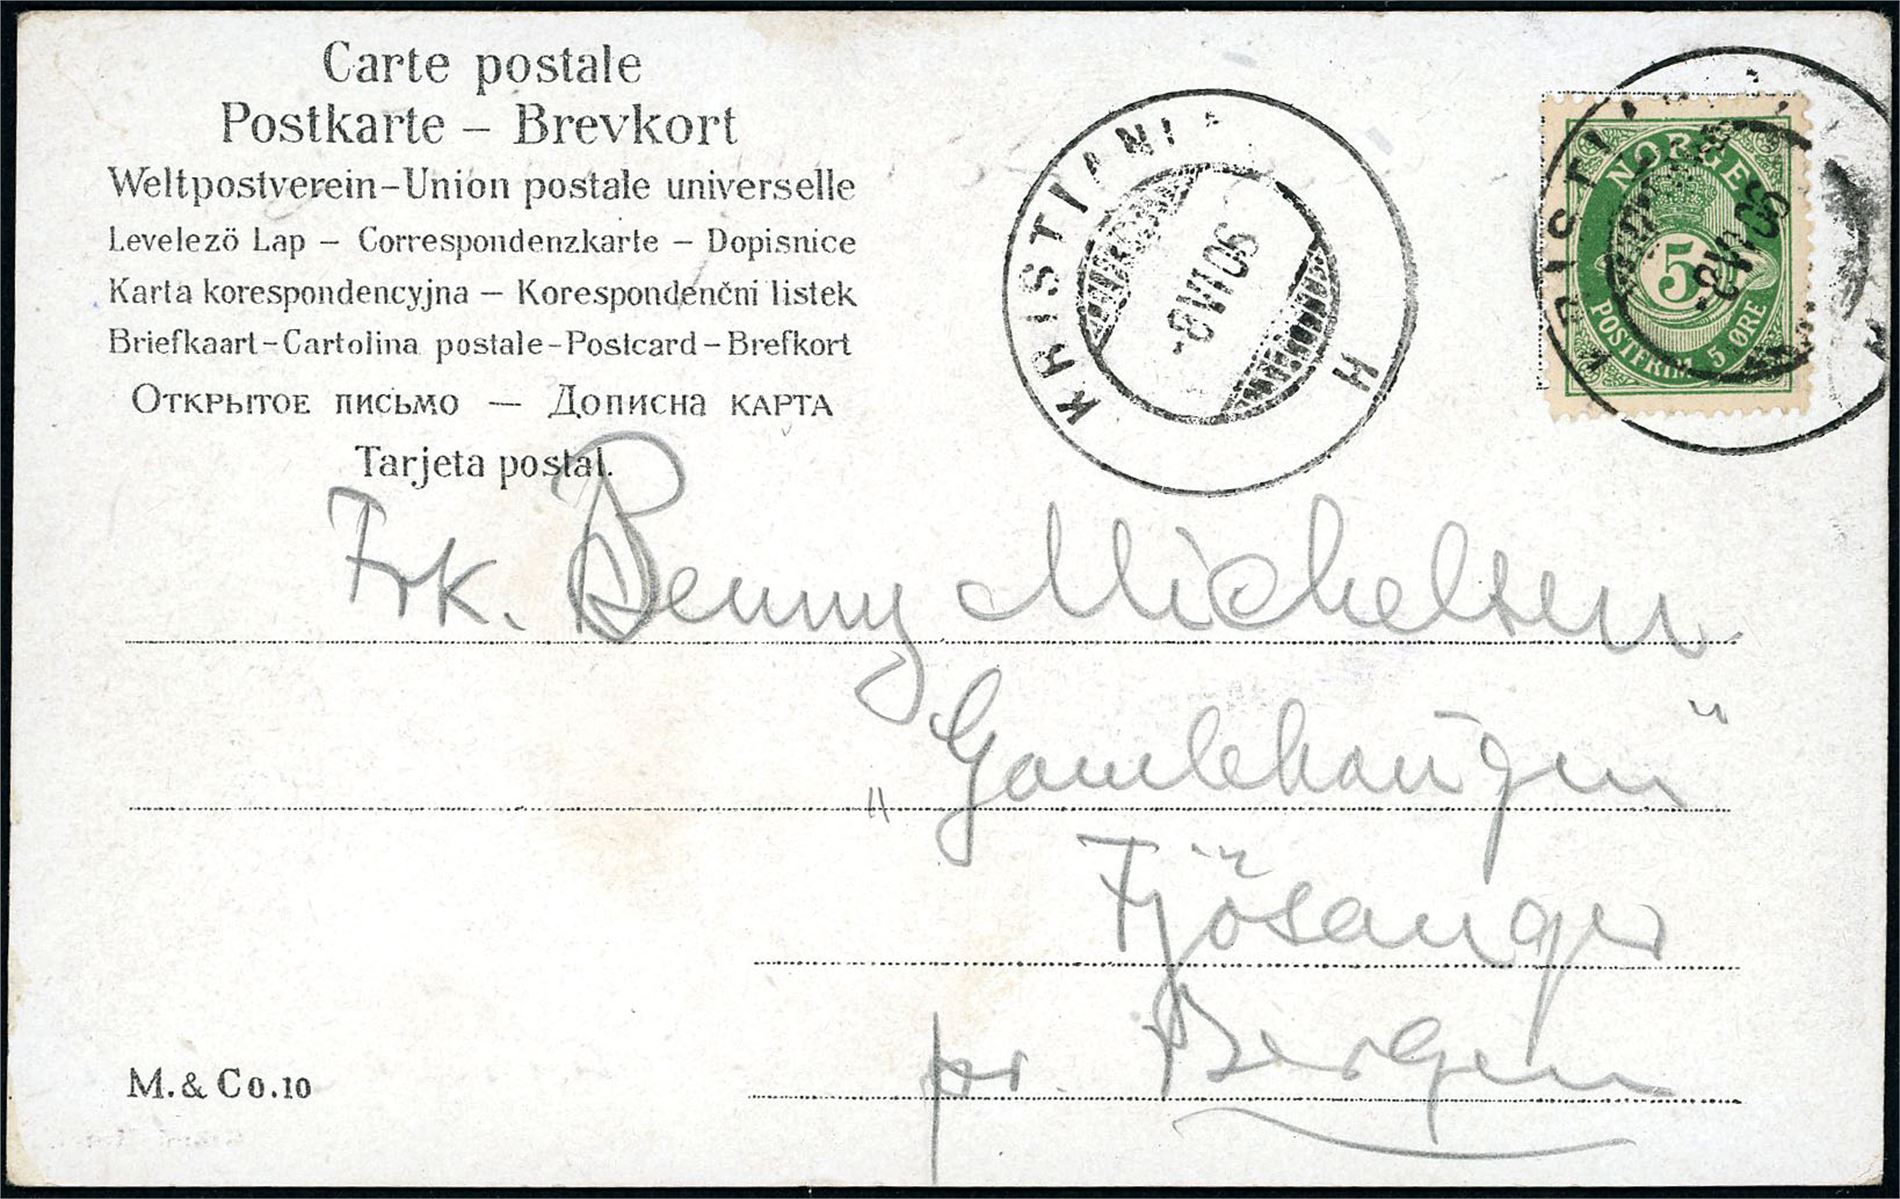 Carte postale
Postkarte – Brevkort
Weltpostverein – Union postale universelle
Levelezö Lap – Correspondenzkarte – Dopisnice
Karta korespondencyjna – Korespondenčni listek
Briefkaart – Cartolina postale – Postcard – Brefkort
Открытое письмо — Дописна карта
Tarjeta postal.
KRISTIANIA
-8 VI 06
H
NORGE
5
POSTFRIM. 5 ØRE
-8 VI 06
Frk. Benny Michelsen
„Gamlehaugen"
Fjösanger
pr. Bergen
M. & Co. 10